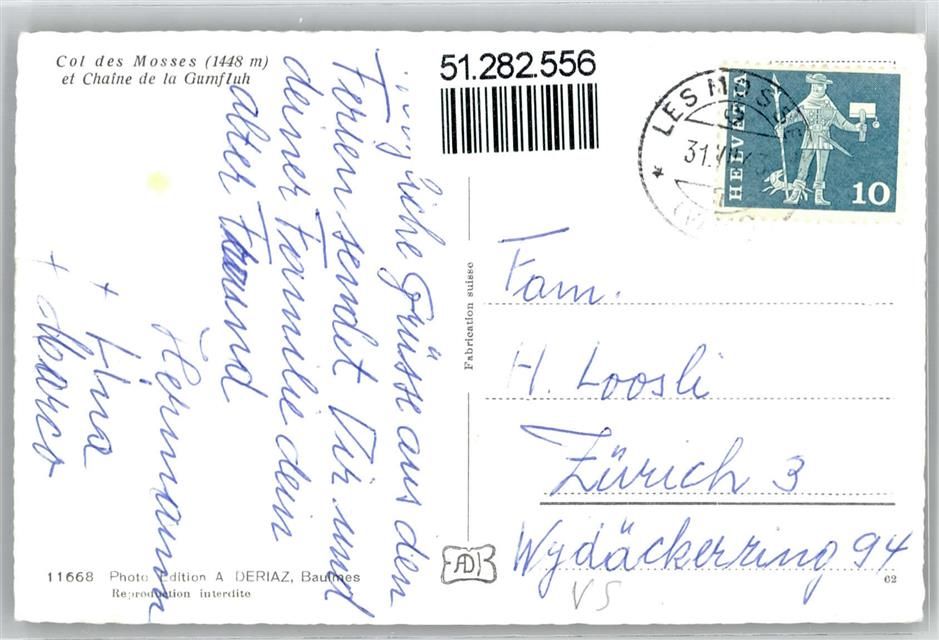 Col des Mosses (1448 m)
et Chaîne de la Gumfluh
51.282.556
LES MOSSES
HELVETIA
10
Grüsse aus den
Ferien sendet Dir und
deiner Familie dein
alter Freund
Hermann
+ Lina
+ Marco
Fabrication suisse
Fam.
H. Loosli
Zürich 3
Wydäckerring 94
VS
11668 Photo Edition A DERIAZ, Baulmes
Reproduction interdite
AD
62